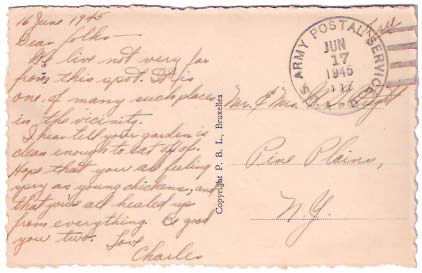 16 June 1945
Dear Folks—
We live not very far
from this spot. It is
one of many such places
in the vicinity.
I hear tell your garden is
clean enough to eat up of.
Hope that you're all feeling
spry as young chickens, and
that you're all healed up
from everything. Be good
you two. Love
Charles
Copyright P. B. L., Bruxelles
U.S. ARMY POSTAL SERVICE
JUN
17
1945
Mr. & Mrs.
Pine Plains,
N.Y.